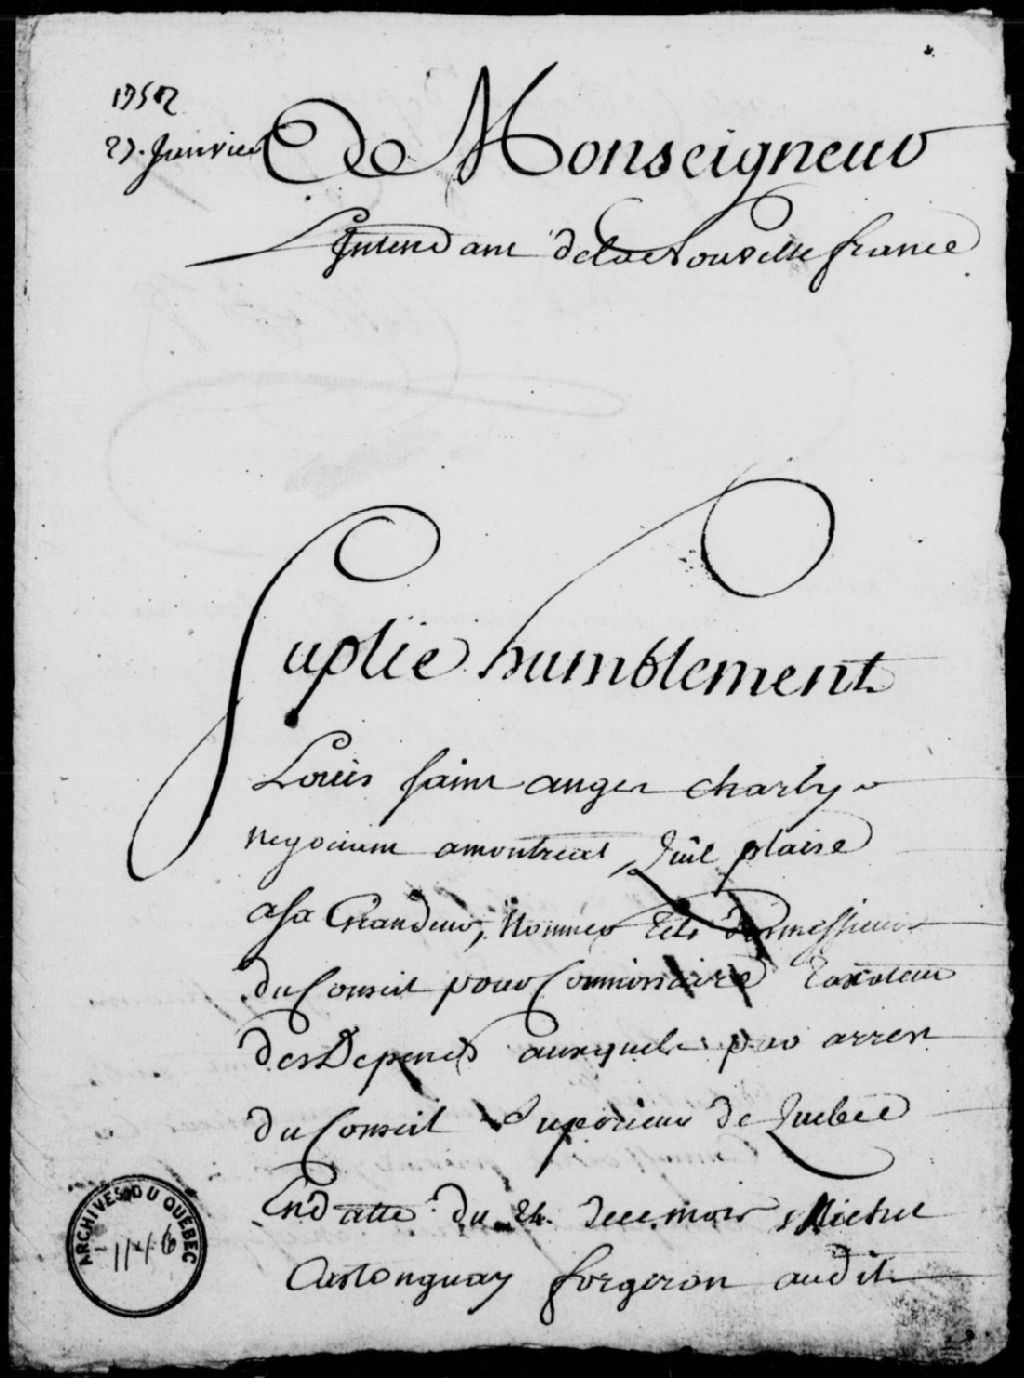 1752
27. Janvier
De Monseigneur
L'Intendant de la Nouvelle france
Suplie humblement
Loüis saint ange charly
negociant a montreal, Quil plaise
a sa Grandeur, Nommer tels de messieurs
du Conseil pour Commissaire taxateur
des Depences auxquels par arrest
du Conseil Superieur de Quebec
En datte du 24. de ce mois, Michel
Castonguay forgeron audit
ARCHIVES DU QUEBEC